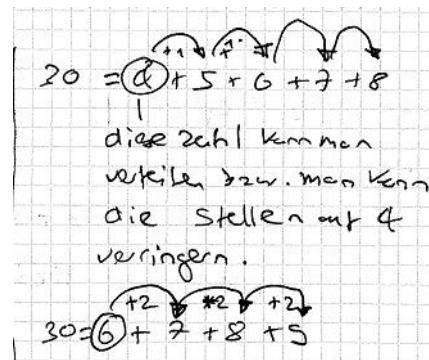 +1 +1
30 = 4 + 5 + 6 + 7 + 8
diese zahl kann man
verteilen bzw. man kann
die Stellen auf 4
verringern.
+2 +2 +2
30 = 6 + 7 + 8 + 9